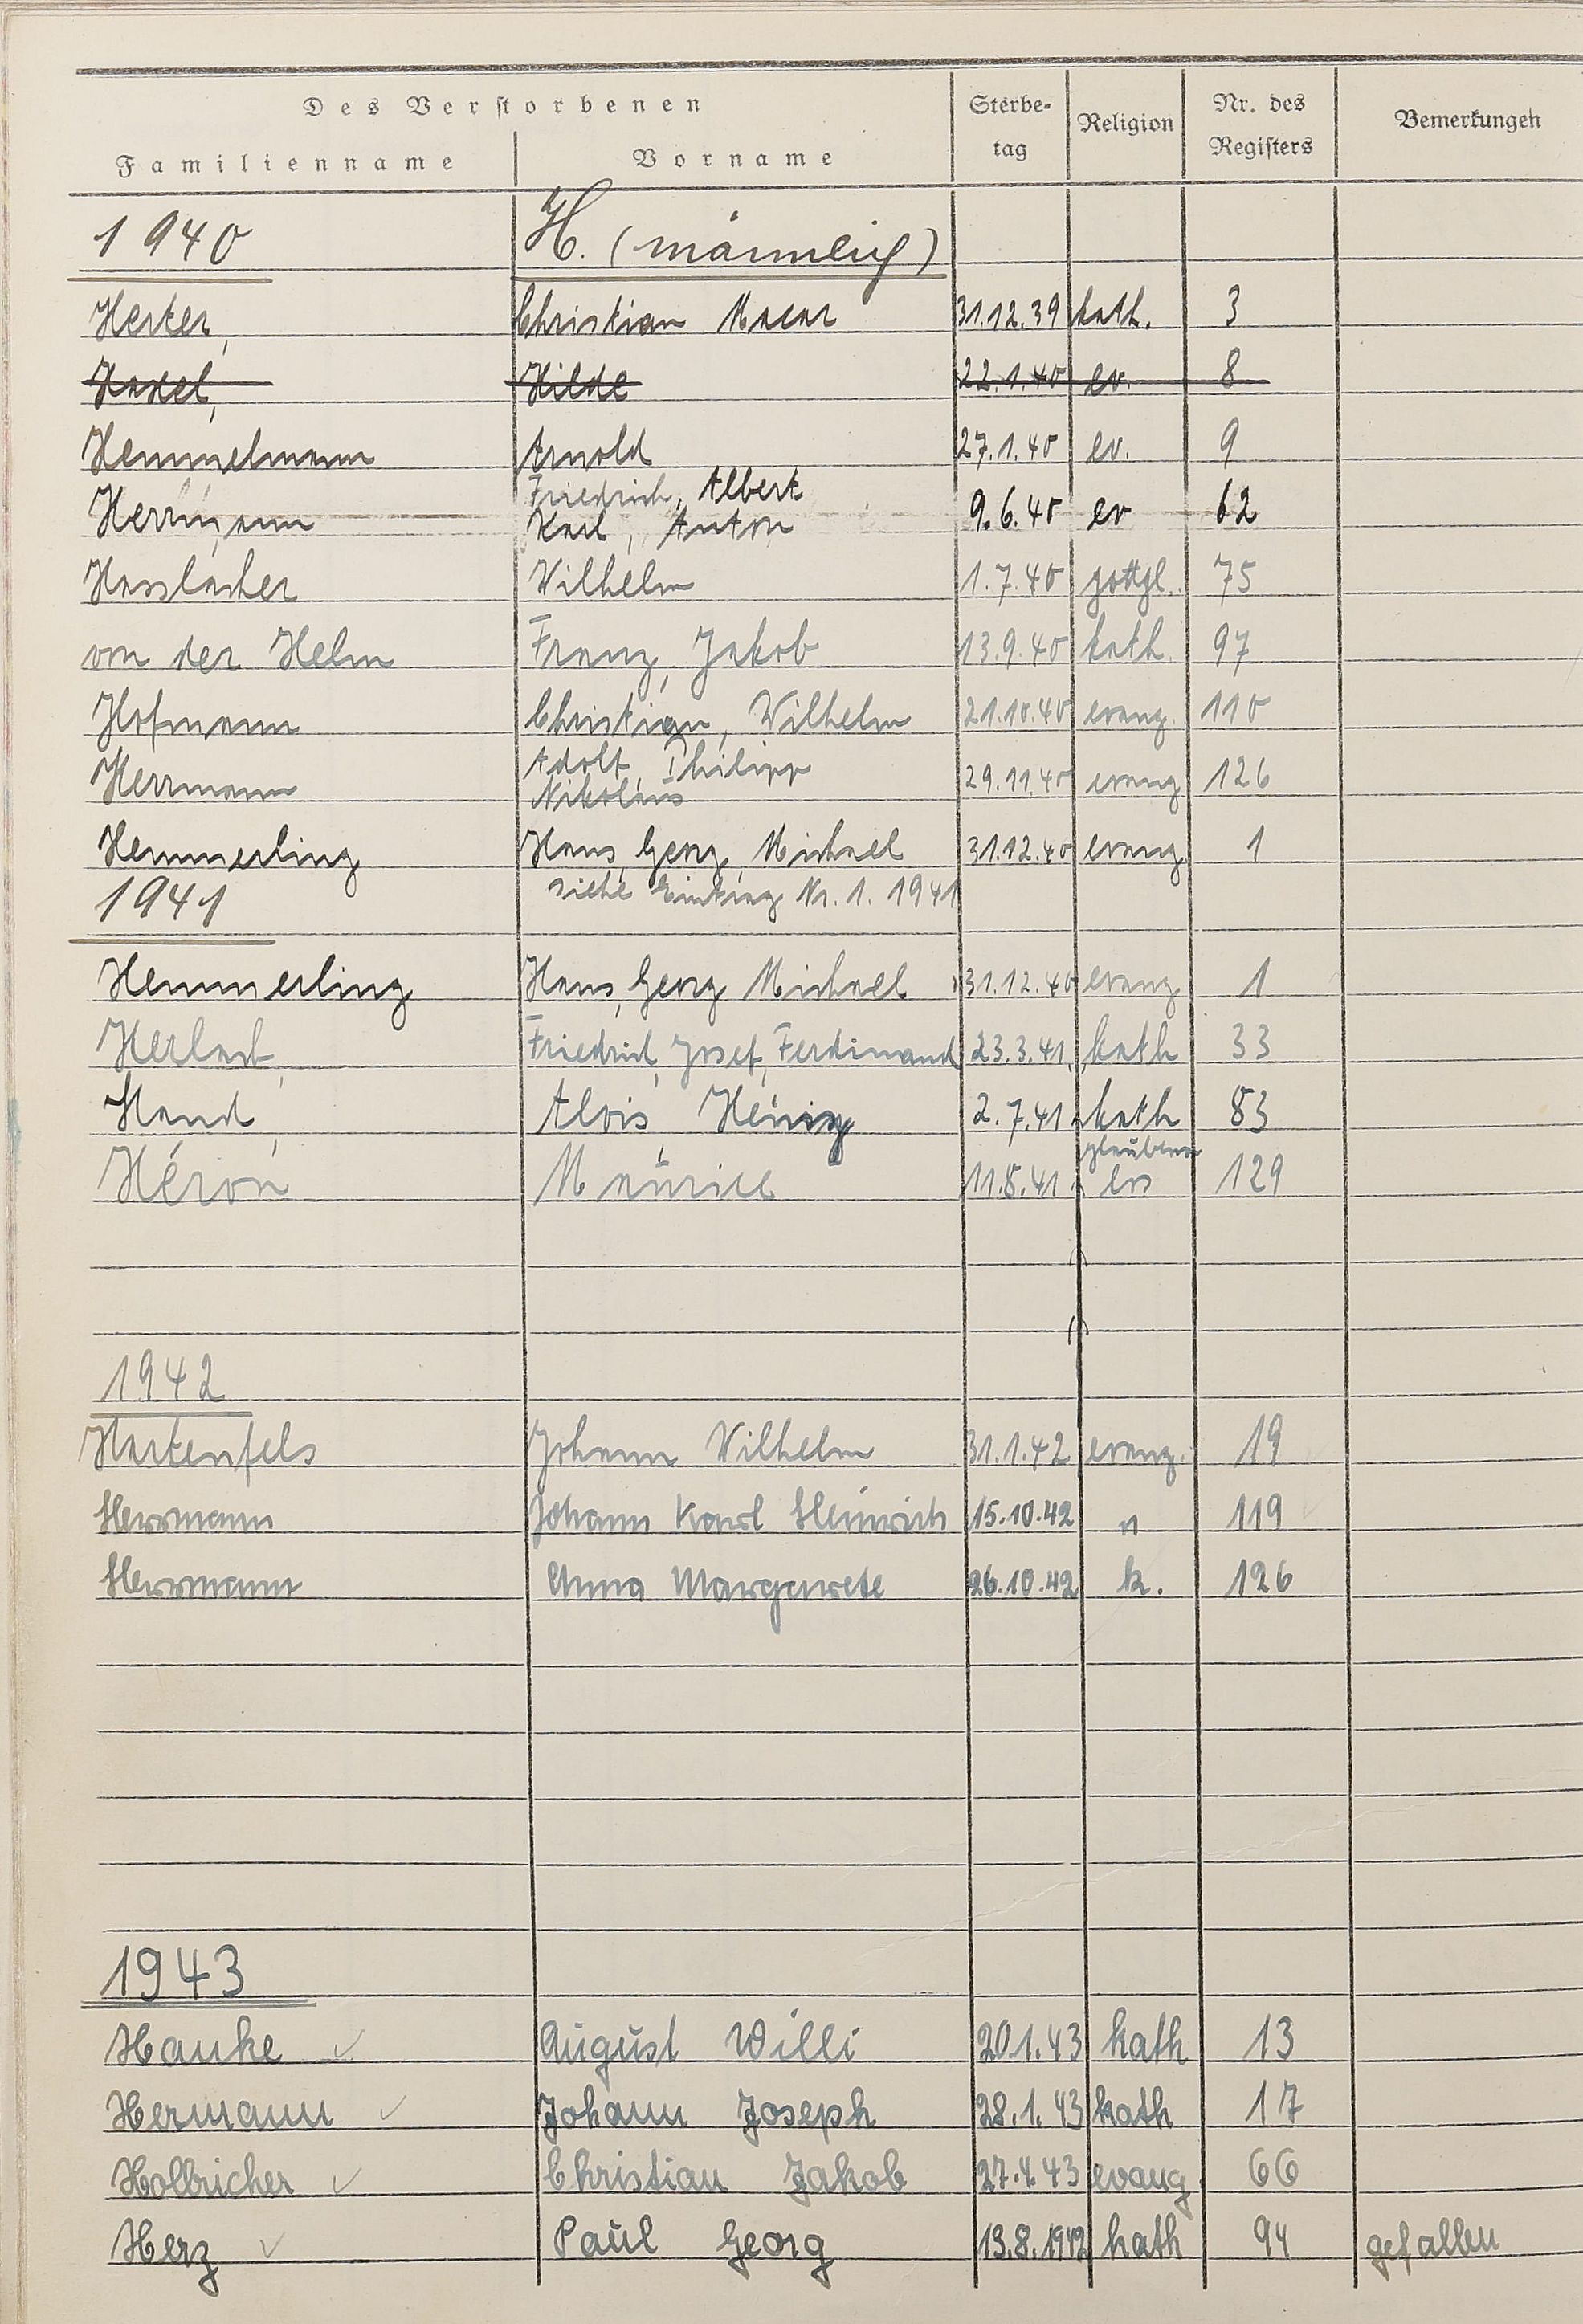 Des Verstorbenen
Sterbe-
tag
Religion
Nr. des
Registers
Bemerkungen
Familienname Vorname
1940 H. (männlich)
Herter, Christian Oscar 31.12.39 kath. 3
Hasel, Hilde 22.1.40 ev. 8
Hemmelmann Arnold 27.1.40 ev. 9
Friedrich, Albert
Herrmann Karl, Anton 9.6.40 ev 62
Hasslacher Wilhelm 1.7.40 gottgl. 75
von der Helm Franz, Jakob 13.9.40 kath. 97
Hofmann Christian, Wilhelm 21.10.40 evang. 110
Adolf, Philipp
Herrmann Nikolaus 29.11.40 evang 126
Hemmerling Hans, Georg Michael 31.12.40 evang 1
1941 siehe Eintrag Nr. 1. 1941
Hemmerling Hans, Georg Michael 31.12.40 evang 1
Friedrich, Josef, Ferdinand 23.3.41. kath 33
Hand, Alois 2.7.41. kath 83
glaubens
Héron Maurice 11.8.41. los 129
1942
Hartenfels Johann Wilhelm 31.1.42 evang. 19
Herrmann Johann Karl Heinrich 15.10.42 " 119
Herrmann Anna Margarete 26.10.42 k. 126
1943
Hanke ✓ August Willi 20.1.43 kath 13
Hermann ✓ Johann Joseph 28.1.43 kath 17
Holbricher ✓ Christian Jakob 27.4.43 evang. 66
Herz ✓ Paul Georg 13.8.1942 kath 94 gefallen